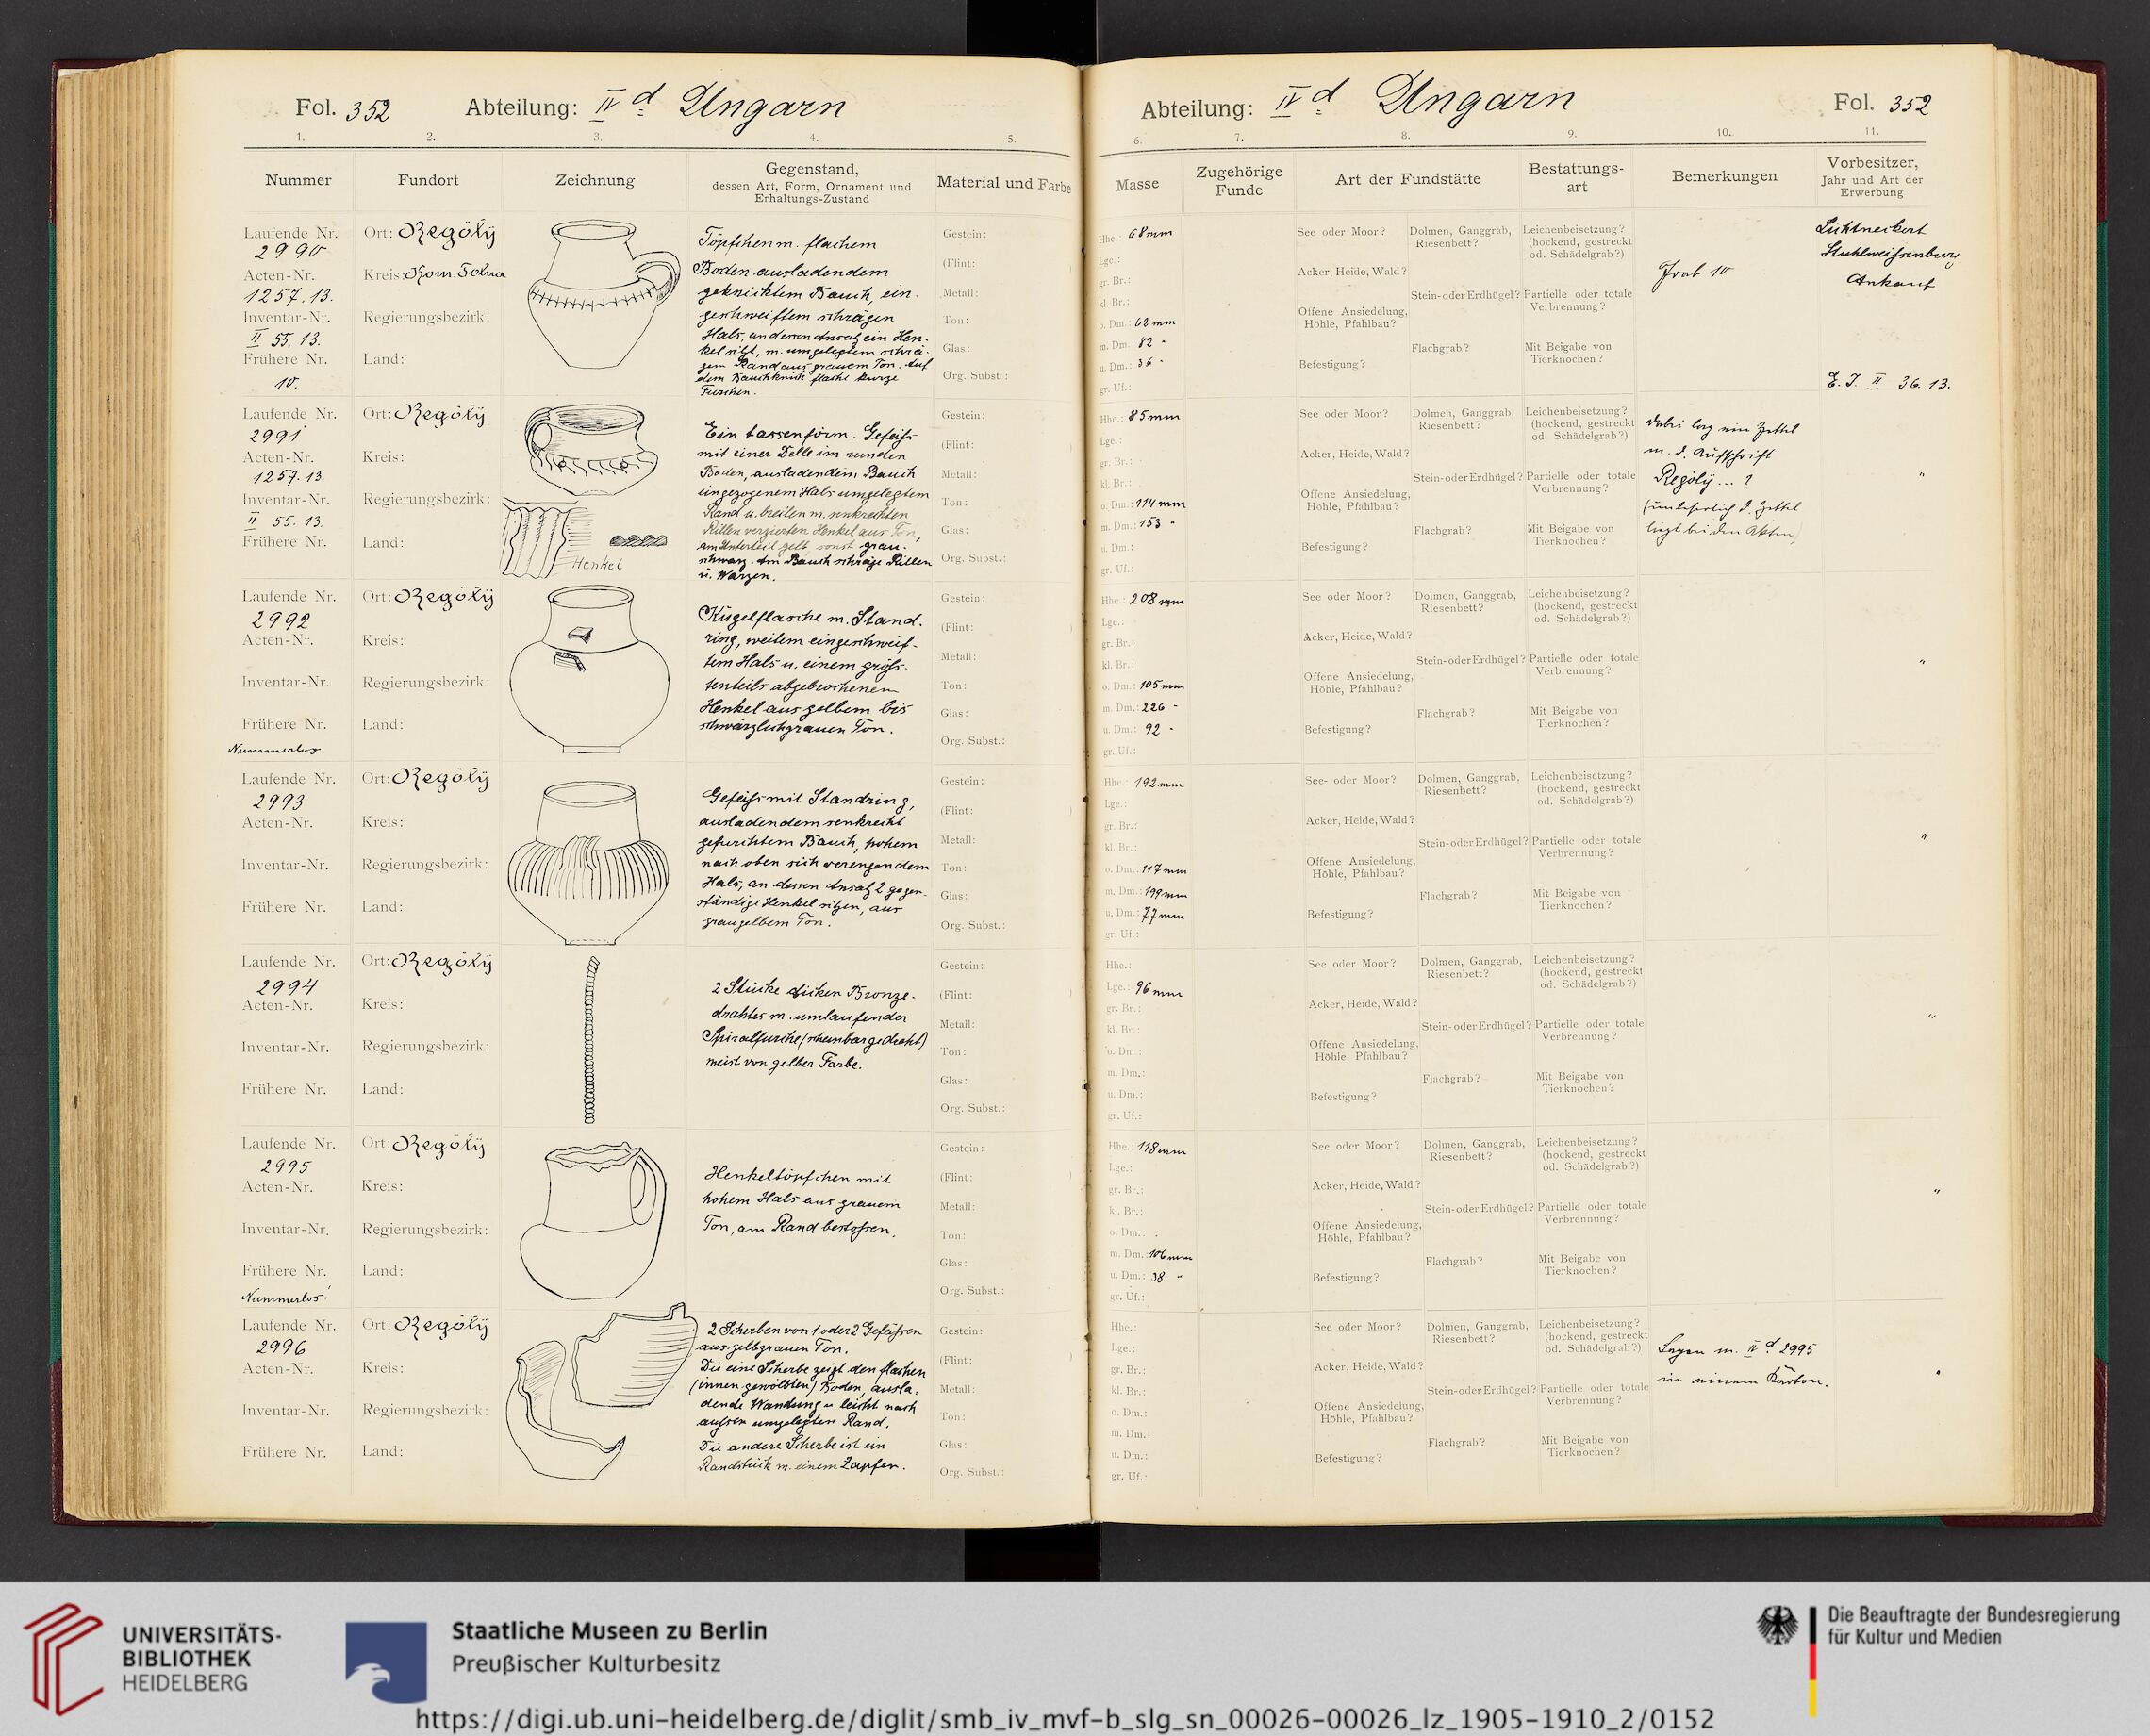 Fol. 352 Abteilung: IV d Ungarn
1. 2. 3. 4. 5.
Nummer Fundort Zeichnung Gegenstand, dessen Art, Form, Ornament und Erhaltungs-Zustand Material und Farbe
Laufende Nr. 2990
Acten-Nr. 1257.13.
Inventar-Nr. II 55.13.
Frühere Nr. 10.
Ort: Regöly
Kreis: Kom. Tolna
Regierungsbezirk:
Land:
Töpfchen m. flachem
Boden ausladendem
geknicktem Bauch, ein-
geschweiftem schrägen
Hals, an dessen Ansatz ein Hen-
kel sitzt, m. umgelegtem schrä-
gem Rand aus grauem Ton. Auf
dem Bauchknick flache kurze
Furchen.
Gestein:
(Flint:
Metall:
Ton:
Glas:
Org. Subst.:
Laufende Nr. 2991
Acten-Nr. 1257.13.
Inventar-Nr. II 55.13.
Frühere Nr.
Ort: Regöly
Kreis:
Regierungsbezirk:
Land:
Henkel
Ein tassenförm. Gefäß
mit einer Delle im runden
Boden, ausladendem Bauch
eingezogenem Hals umgelegtem
Rand u. breiten m. senkrechten
Rillen verzierten Henkel aus Ton,
am Unterteil gelb sonst grau-
schwarz. Am Bauch schräge Rillen
u. Warzen.
Gestein:
(Flint:
Metall:
Ton:
Glas:
Org. Subst.:
Laufende Nr. 2992
Acten-Nr.
Inventar-Nr.
Frühere Nr.
Nummerlos
Ort: Regöly
Kreis:
Regierungsbezirk:
Land:
Kugelflasche m. Stand-
ring, weitem eingeschweif-
tem Hals u. einem größ-
tenteils abgebrochenem
Henkel aus gelbem bis
schwärzlichgrauen Ton.
Gestein:
(Flint:
Metall:
Ton:
Glas:
Org. Subst.:
Laufende Nr. 2993
Acten-Nr.
Inventar-Nr.
Frühere Nr.
Ort: Regöly
Kreis:
Regierungsbezirk:
Land:
Gefäß mit Standring,
ausladendem senkrecht
gefurchtem Bauch, hohem
nach oben sich verengendem
Hals, an dessen Ansatz 2 gegen-
ständige Henkel sitzen, aus
graugelbem Ton.
Gestein:
(Flint:
Metall:
Ton:
Glas:
Org. Subst.:
Laufende Nr. 2994
Acten-Nr.
Inventar-Nr.
Frühere Nr.
Ort: Regöly
Kreis:
Regierungsbezirk:
Land:
2 Stücke dicken Bronze-
drahtes m. umlaufender
Spiralfurche (scheinbar gedreht)
meist von gelber Farbe.
Gestein:
(Flint:
Metall:
Ton:
Glas:
Org. Subst.:
Laufende Nr. 2995
Acten-Nr.
Inventar-Nr.
Frühere Nr.
Nummerlos
Ort: Regöly
Kreis:
Regierungsbezirk:
Land:
Henkeltöpfchen mit
hohem Hals aus grauem
Ton, am Rand bestoßen.
Gestein:
(Flint:
Metall:
Ton:
Glas:
Org. Subst.:
Laufende Nr. 2996
Acten-Nr.
Inventar-Nr.
Frühere Nr.
Ort: Regöly
Kreis:
Regierungsbezirk:
Land:
2 Scherben von 1 oder 2 Gefäßen
aus gelbgrauen Ton.
Die eine Scherbe zeigt den flachen
(innen gewölbten) Boden, ausla-
dende Wandung u. leicht nach
außen umgelegten Rand.
Die andere Scherbe ist ein
Randstück m. einem Zapfen.
Gestein:
(Flint:
Metall:
Ton:
Glas:
Org. Subst.:
Abteilung: IV d Ungarn Fol. 352
6. 7. 8. 9. 10. 11.
Masse Zugehörige Funde Art der Fundstätte Bestattungs-art Bemerkungen Vorbesitzer, Jahr und Art der Erwerbung
Hhe.: 68 mm
Lge.:
gr. Br.:
kl. Br.:
o. Dm.: 62 mm
m. Dm.: 82 "
u. Dm.: 36 "
gr. Uf.:
See oder Moor?
Acker, Heide, Wald?
Offene Ansiedelung, Höhle, Pfahlbau?
Befestigung?
Dolmen, Ganggrab, Riesenbett?
Stein- oder Erdhügel?
Flachgrab?
Leichenbeisetzung? (hockend, gestreckt od. Schädelgrab?)
Partielle oder totale Verbrennung?
Mit Beigabe von Tierknochen?
Grab 10
Lichtneckert
Stuhlweißenburg
Ankauf
E. J. II 36.13.
Hhe.: 85 mm
Lge.:
gr. Br.:
kl. Br.:
o. Dm.: 114 mm
m. Dm.: 153 "
u. Dm.:
gr. Uf.:
See oder Moor?
Acker, Heide, Wald?
Offene Ansiedelung, Höhle, Pfahlbau?
Befestigung?
Dolmen, Ganggrab, Riesenbett?
Stein- oder Erdhügel?
Flachgrab?
Leichenbeisetzung? (hockend, gestreckt od. Schädelgrab?)
Partielle oder totale Verbrennung?
Mit Beigabe von Tierknochen?
Dabei lag ein Zettel
m. d. Aufschrift
Regöly ... ?
(unleserlich d. Zettel
liegt bei den Akten)
"
Hhe.: 208 mm
Lge.:
gr. Br.:
kl. Br.:
o. Dm.: 105 mm
m. Dm.: 226 "
u. Dm.: 92 "
gr. Uf.:
See oder Moor?
Acker, Heide, Wald?
Offene Ansiedelung, Höhle, Pfahlbau?
Befestigung?
Dolmen, Ganggrab, Riesenbett?
Stein- oder Erdhügel?
Flachgrab?
Leichenbeisetzung? (hockend, gestreckt od. Schädelgrab?)
Partielle oder totale Verbrennung?
Mit Beigabe von Tierknochen?
"
Hhe.: 192 mm
Lge.:
gr. Br.:
kl. Br.:
o. Dm.: 117 mm
m. Dm.: 199 mm
u. Dm.: 77 mm
gr. Uf.:
See- oder Moor?
Acker, Heide, Wald?
Offene Ansiedelung, Höhle, Pfahlbau?
Befestigung?
Dolmen, Ganggrab, Riesenbett?
Stein- oder Erdhügel?
Flachgrab?
Leichenbeisetzung? (hockend, gestreckt od. Schädelgrab?)
Partielle oder totale Verbrennung?
Mit Beigabe von Tierknochen?
"
Hhe.:
Lge.: 96 mm
gr. Br.:
kl. Br.:
o. Dm.:
m. Dm.:
u. Dm.:
gr. Uf.:
See oder Moor?
Acker, Heide, Wald?
Offene Ansiedelung, Höhle, Pfahlbau?
Befestigung?
Dolmen, Ganggrab, Riesenbett?
Stein- oder Erdhügel?
Flachgrab?
Leichenbeisetzung? (hockend, gestreckt od. Schädelgrab?)
Partielle oder totale Verbrennung?
Mit Beigabe von Tierknochen?
"
Hhe.: 118 mm
Lge.:
gr. Br.:
kl. Br.:
o. Dm.:
m. Dm.: 106 mm
u. Dm.: 38 "
gr. Uf.:
See oder Moor?
Acker, Heide, Wald?
Offene Ansiedelung, Höhle, Pfahlbau?
Befestigung?
Dolmen, Ganggrab, Riesenbett?
Stein- oder Erdhügel?
Flachgrab?
Leichenbeisetzung? (hockend, gestreckt od. Schädelgrab?)
Partielle oder totale Verbrennung?
Mit Beigabe von Tierknochen?
"
Hhe.:
Lge.:
gr. Br.:
kl. Br.:
o. Dm.:
m. Dm.:
u. Dm.:
gr. Uf.:
See oder Moor?
Acker, Heide, Wald?
Offene Ansiedelung, Höhle, Pfahlbau?
Befestigung?
Dolmen, Ganggrab, Riesenbett?
Stein- oder Erdhügel?
Flachgrab?
Leichenbeisetzung? (hockend, gestreckt od. Schädelgrab?)
Partielle oder totale Verbrennung?
Mit Beigabe von Tierknochen?
Lagen m. II d 2995
in einem Karton.
"
UNIVERSITÄTS-
BIBLIOTHEK
HEIDELBERG
Staatliche Museen zu Berlin
Preußischer Kulturbesitz
Die Beauftragte der Bundesregierung
für Kultur und Medien
https://digi.ub.uni-heidelberg.de/diglit/smb_iv_mvf-b_slg_sn_00026-00026_lz_1905-1910_2/0152